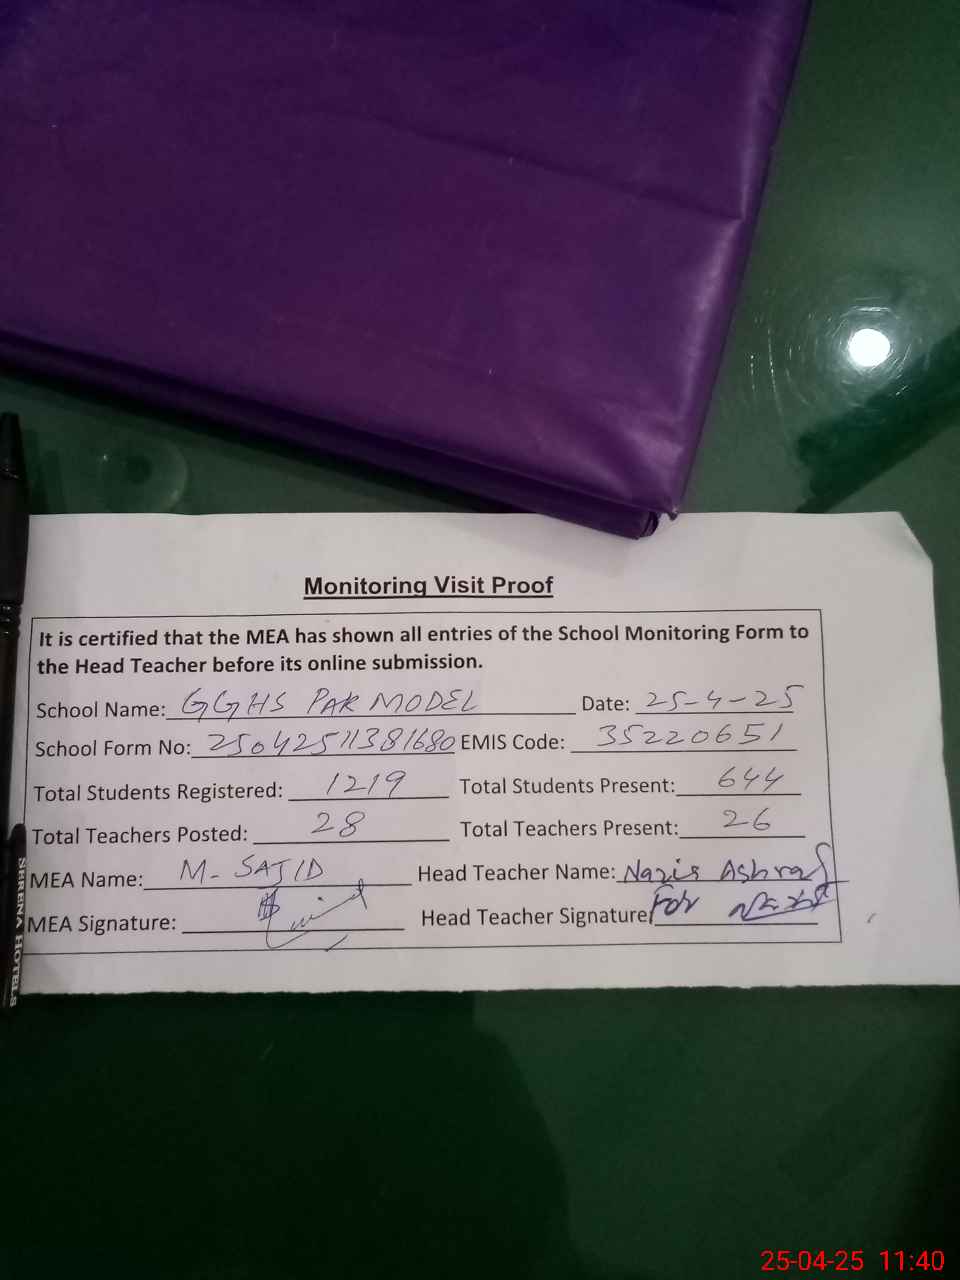 Monitoring Visit Proof
It is certified that the MEA has shown all entries of the School Monitoring Form to
the Head Teacher before its online submission.
School Name: GGHS PAK MODEL Date: 25-4-25
School Form No: 25042511381680 EMIS Code: 35220651
Total Students Registered: 1219 Total Students Present: 644
Total Teachers Posted: 28 Total Teachers Present: 26
MEA Name: M- SAJID Head Teacher Name: Nazis Ashraf
MEA Signature: Head Teacher Signature For
SERENA HOTELS
25-04-25 11:40